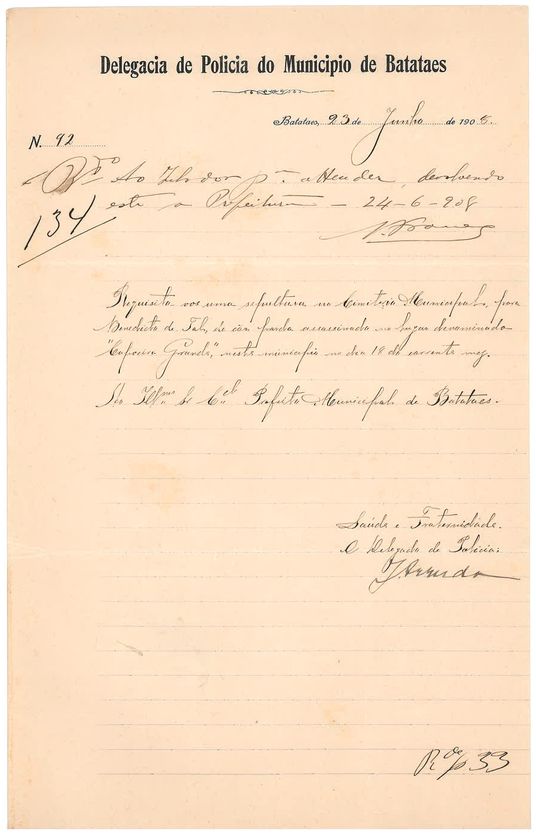 Delegacia de Policia do Municipio de Batataes
Batataes, 23 de Junho de 1908.
N. 92
Ao Zelador pa attender, devolvendo
este a Prefeitura – 24-6-908
134
Requisita vos uma sepultura no Cemiterio Municipal, para
Benedicto de Tal, de côr parda assassinado no lugar denominado
"Capoeira Grande", neste municipio no dia 19 do corrente mez.
Ao Illmo Sr Cel Prefeito Municipal de Batataes.
Saúde e Fraternidade.
O Delegado de Policia:
J Arruda
33